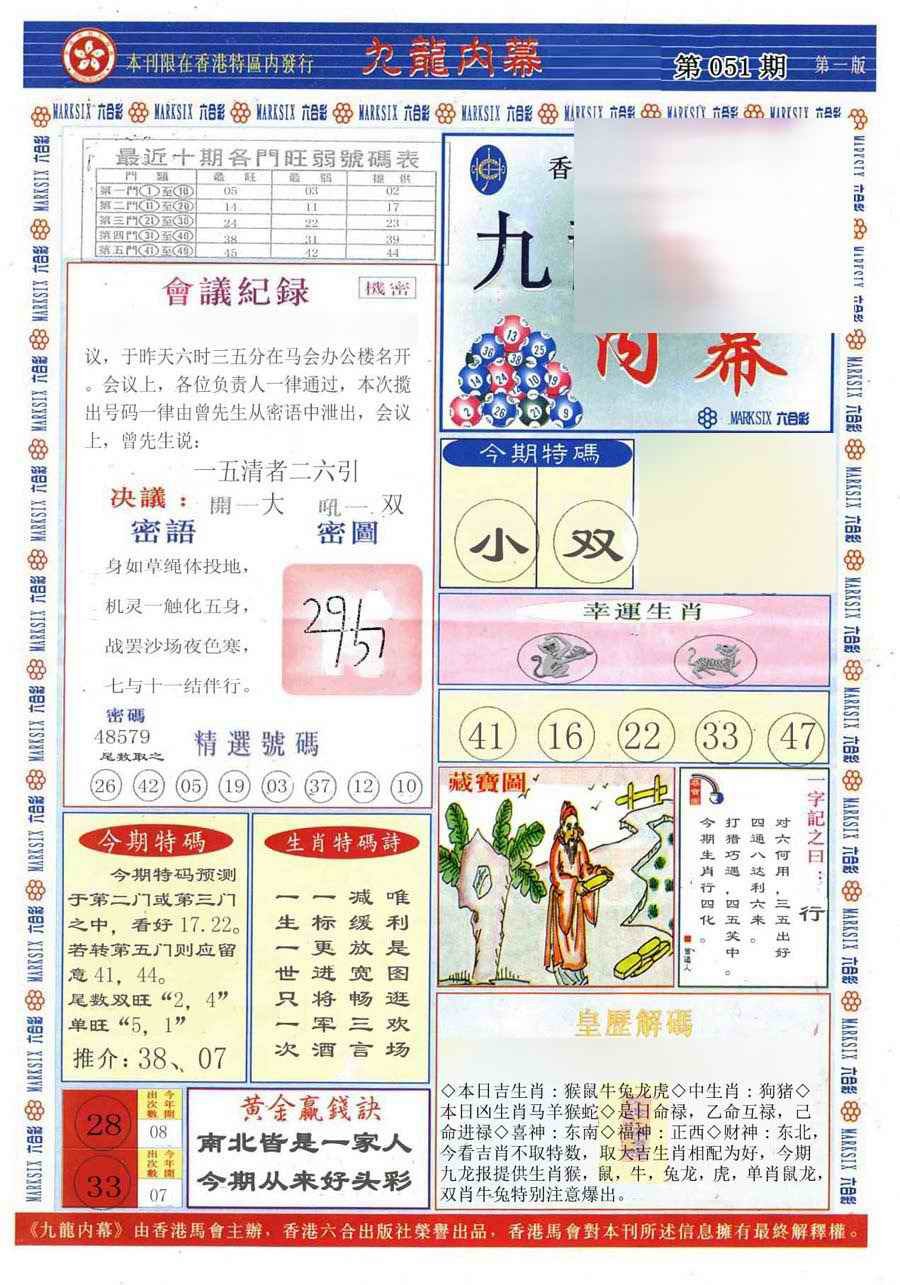 本刊限在香港特區内發行
九龍内幕
第 051 期
第一版
MARKSIX 六合彩
最近十期各門旺弱號碼表
門 類 最 旺 最 弱 提 供
第一門①至⑩ 05 03 02
第二門⑪至⑳ 14 11 17
第三門㉑至㉚ 24 22 23
第四門㉛至㊵ 38 31 39
第五門㊶至㊾ 45 42 44
會議紀録
機密
议，于昨天六时三五分在马会办公楼名开
。会议上，各位负责人一律通过，本次揽
出号码一律由曾先生从密语中泄出，会议
上，曾先生说：
一五清者二六引
决議：開一大 吼一 双
密語
密圖
身如草绳体投地，
机灵一触化五身，
战罢沙场夜色寒，
七与十一结伴行。
密碼
48579
尾数取之
精選號碼
26 42 05 19 03 37 12 10
香
九
内幕
13
36 38 25
14 24 10 19
2 26 21 9
MARKSIX 六合彩
今期特碼
小 双
幸運生肖
41 16 22 33 47
藏寶圖
一字記之曰：
行
对六何用，三五出好
四通八达利六来。
打猎巧遇，四五笑中。
今期生肖行四化。
今期特碼
今期特码预测
于第二门或第三门
之中，看好 17.22。
若转第五门则应留
意 41，44。
尾数双旺“2，4”
单旺“5，1”
推介：38、07
生肖特碼詩
唯利是图逛欢场
减缓放宽畅三言
一标更进将军酒
一生一世只一次
28
今年開出次數
08
33
今年開出次數
07
黄金贏錢訣
南北皆是一家人
今期从来好头彩
皇歷解碼
◇本日吉生肖：猴鼠牛兔龙虎◇中生肖：狗猪◇
本日凶生肖马羊猴蛇◇是日命禄，乙命互禄，己
命进禄◇喜神：东南◇福神：正西◇财神：东北，
今看吉肖不取特数，取大吉生肖相配为好，今期
九龙报提供生肖猴，鼠，牛，兔龙，虎，单肖鼠龙，
双肖牛兔特别注意爆出。
《九龍内幕》由香港馬會主辦，香港六合出版社榮譽出品，香港馬會對本刊所述信息擁有最終解釋權。